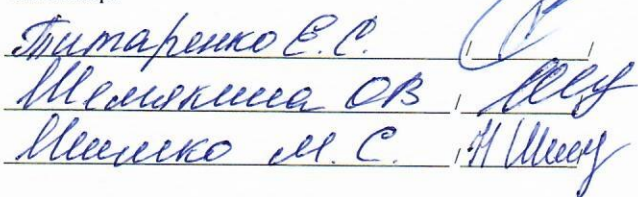 Титаренко Е.С.
Шемякина ОВ
Шишко М.С.